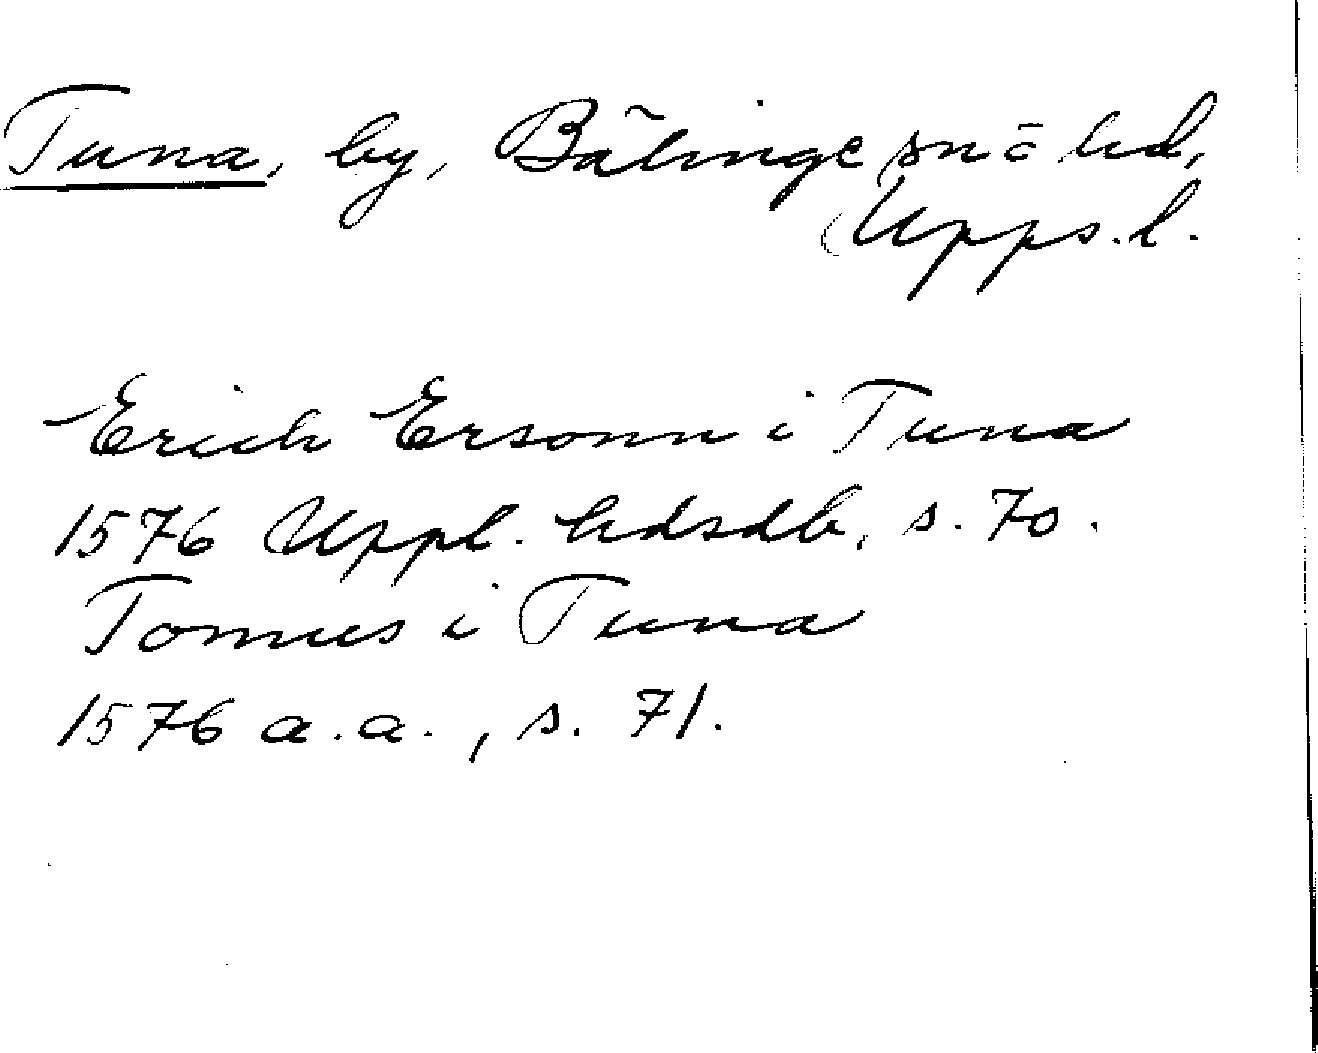 Tuna, by, Bälinge sn o hd,
Upps. l.
Erich Ersonn i Tuna
1576 Uppl. hdsdb, s. 70.
Tomus i Tuna
1576 a.a., s. 71.